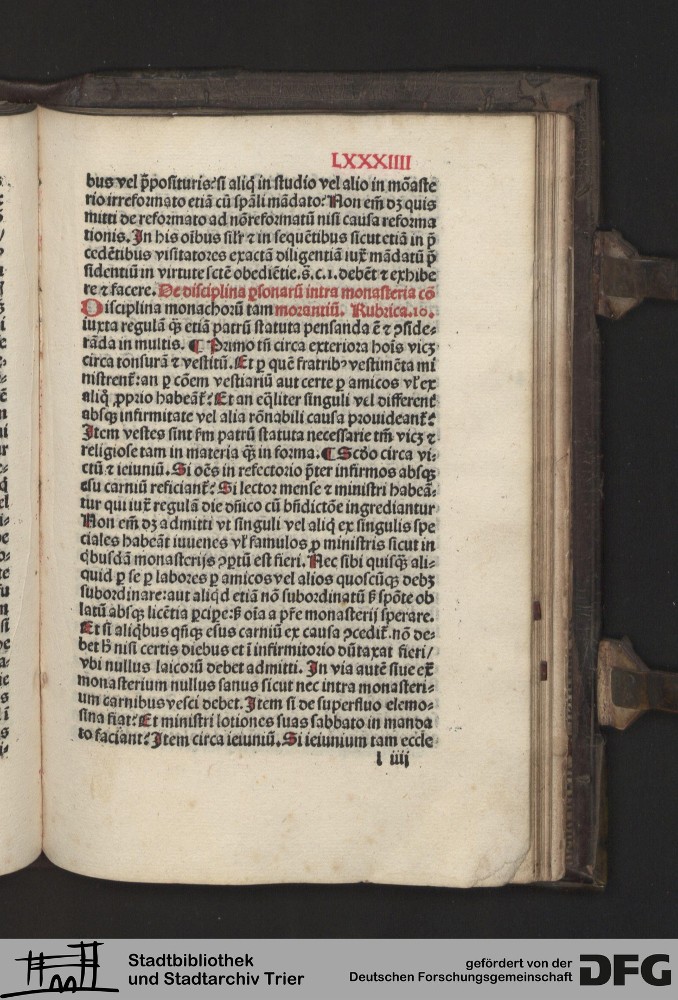 LXXXIIII
bus vel p̄posituris: si aliq̄ in studio vel alio in mōaste
rio irreformato etiā cū sp̄ali mādato? Non em̄ dꝫ quis
mitti de reformato ad nōreformatū nisi causa reforma
tionis. In his oībus silr̄ ⁊ in sequētibus sicut etiā in p̄
cedētibus visitatores exactā diligentiā iux̄ mādatū p̄
sidentiū in virtute sctē obediētie.s̄.c.1.debēt ⁊ exhibe
re ⁊ facere. De disciplina ꝑsonarū intra monasteria cō
Disciplina monachorū tam morantiū. Rubrica.10.
iuxta regulā q̄ꝫ etiā patrū statuta pensanda ē ⁊ ꝯside⸗
rāda in multis. ¶ Primo tn̄ circa exteriora hoīs vicꝫ
circa tonsurā ⁊ vestitū. Et ꝑ quē fratribꝰ vestimēta mi
nistrent᷑: an ꝑ cōem vestiariū aut certe ꝑ amicos vl̓ ex
aliq̄ ꝓprio habeāt᷑? Et an eq̄liter singuli vel different᷑
absqꝫ infirmitate vel alia rōnabili causa prouideant᷑?
Item vestes sint ẜm patrū statuta necessarie tm̄ vicꝫ ⁊
religiose tam in materia q̄ꝫ in forma. ¶ Scd̄o circa vi⸗
ctū ⁊ ieiuniū. Si oēs in refectorio p̄ter infirmos absqꝫ
esu carniū reficiant᷑? Si lector mense ⁊ ministri habeā⸗
tur qui iux̄ regulā die dn̄ico cū bn̄dictōe ingrediantur
Non em̄ dꝫ admitti vt singuli vel aliq̄ ex singulis spe
ciales habeāt iuuenes vl̓ famulos ꝓ ministris sicut in
q̇busdā monasterijs ꝯꝑtū est fieri. Nec sibi quisq̄ꝫ ali⸗
quid ꝑ se ꝑ labores ꝑ amicos vel alios quoscūqꝫ debꝫ
subordinare: aut aliq̇d etiā nō subordinatū ẜ spōte ob
latū absqꝫ licētia ꝑcipe: ẜ oīa a pr̄e monasterij sperare.
Et si aliq̇bus qn̄qꝫ esus carniū ex causa ꝯcedit᷑. nō de⸗
bet h̄ nisi certis diebus et ī infirmitorio dūtaxat fieri/
vbi nullus laicorū debet admitti. In via autē siue ex̄
monasterium nullus sanus sicut nec intra monasteri⸗
um carnibus vesci debet. Item si de superfluo elemo⸗
sina fiat? Et ministri lotiones suas sabbato in manda
to faciant? Item circa ieiuniū. Si ieiunium tam eccle
l iiij
Stadtbibliothek
und Stadtarchiv Trier
gefördert von der
Deutschen Forschungsgemeinschaft
DFG